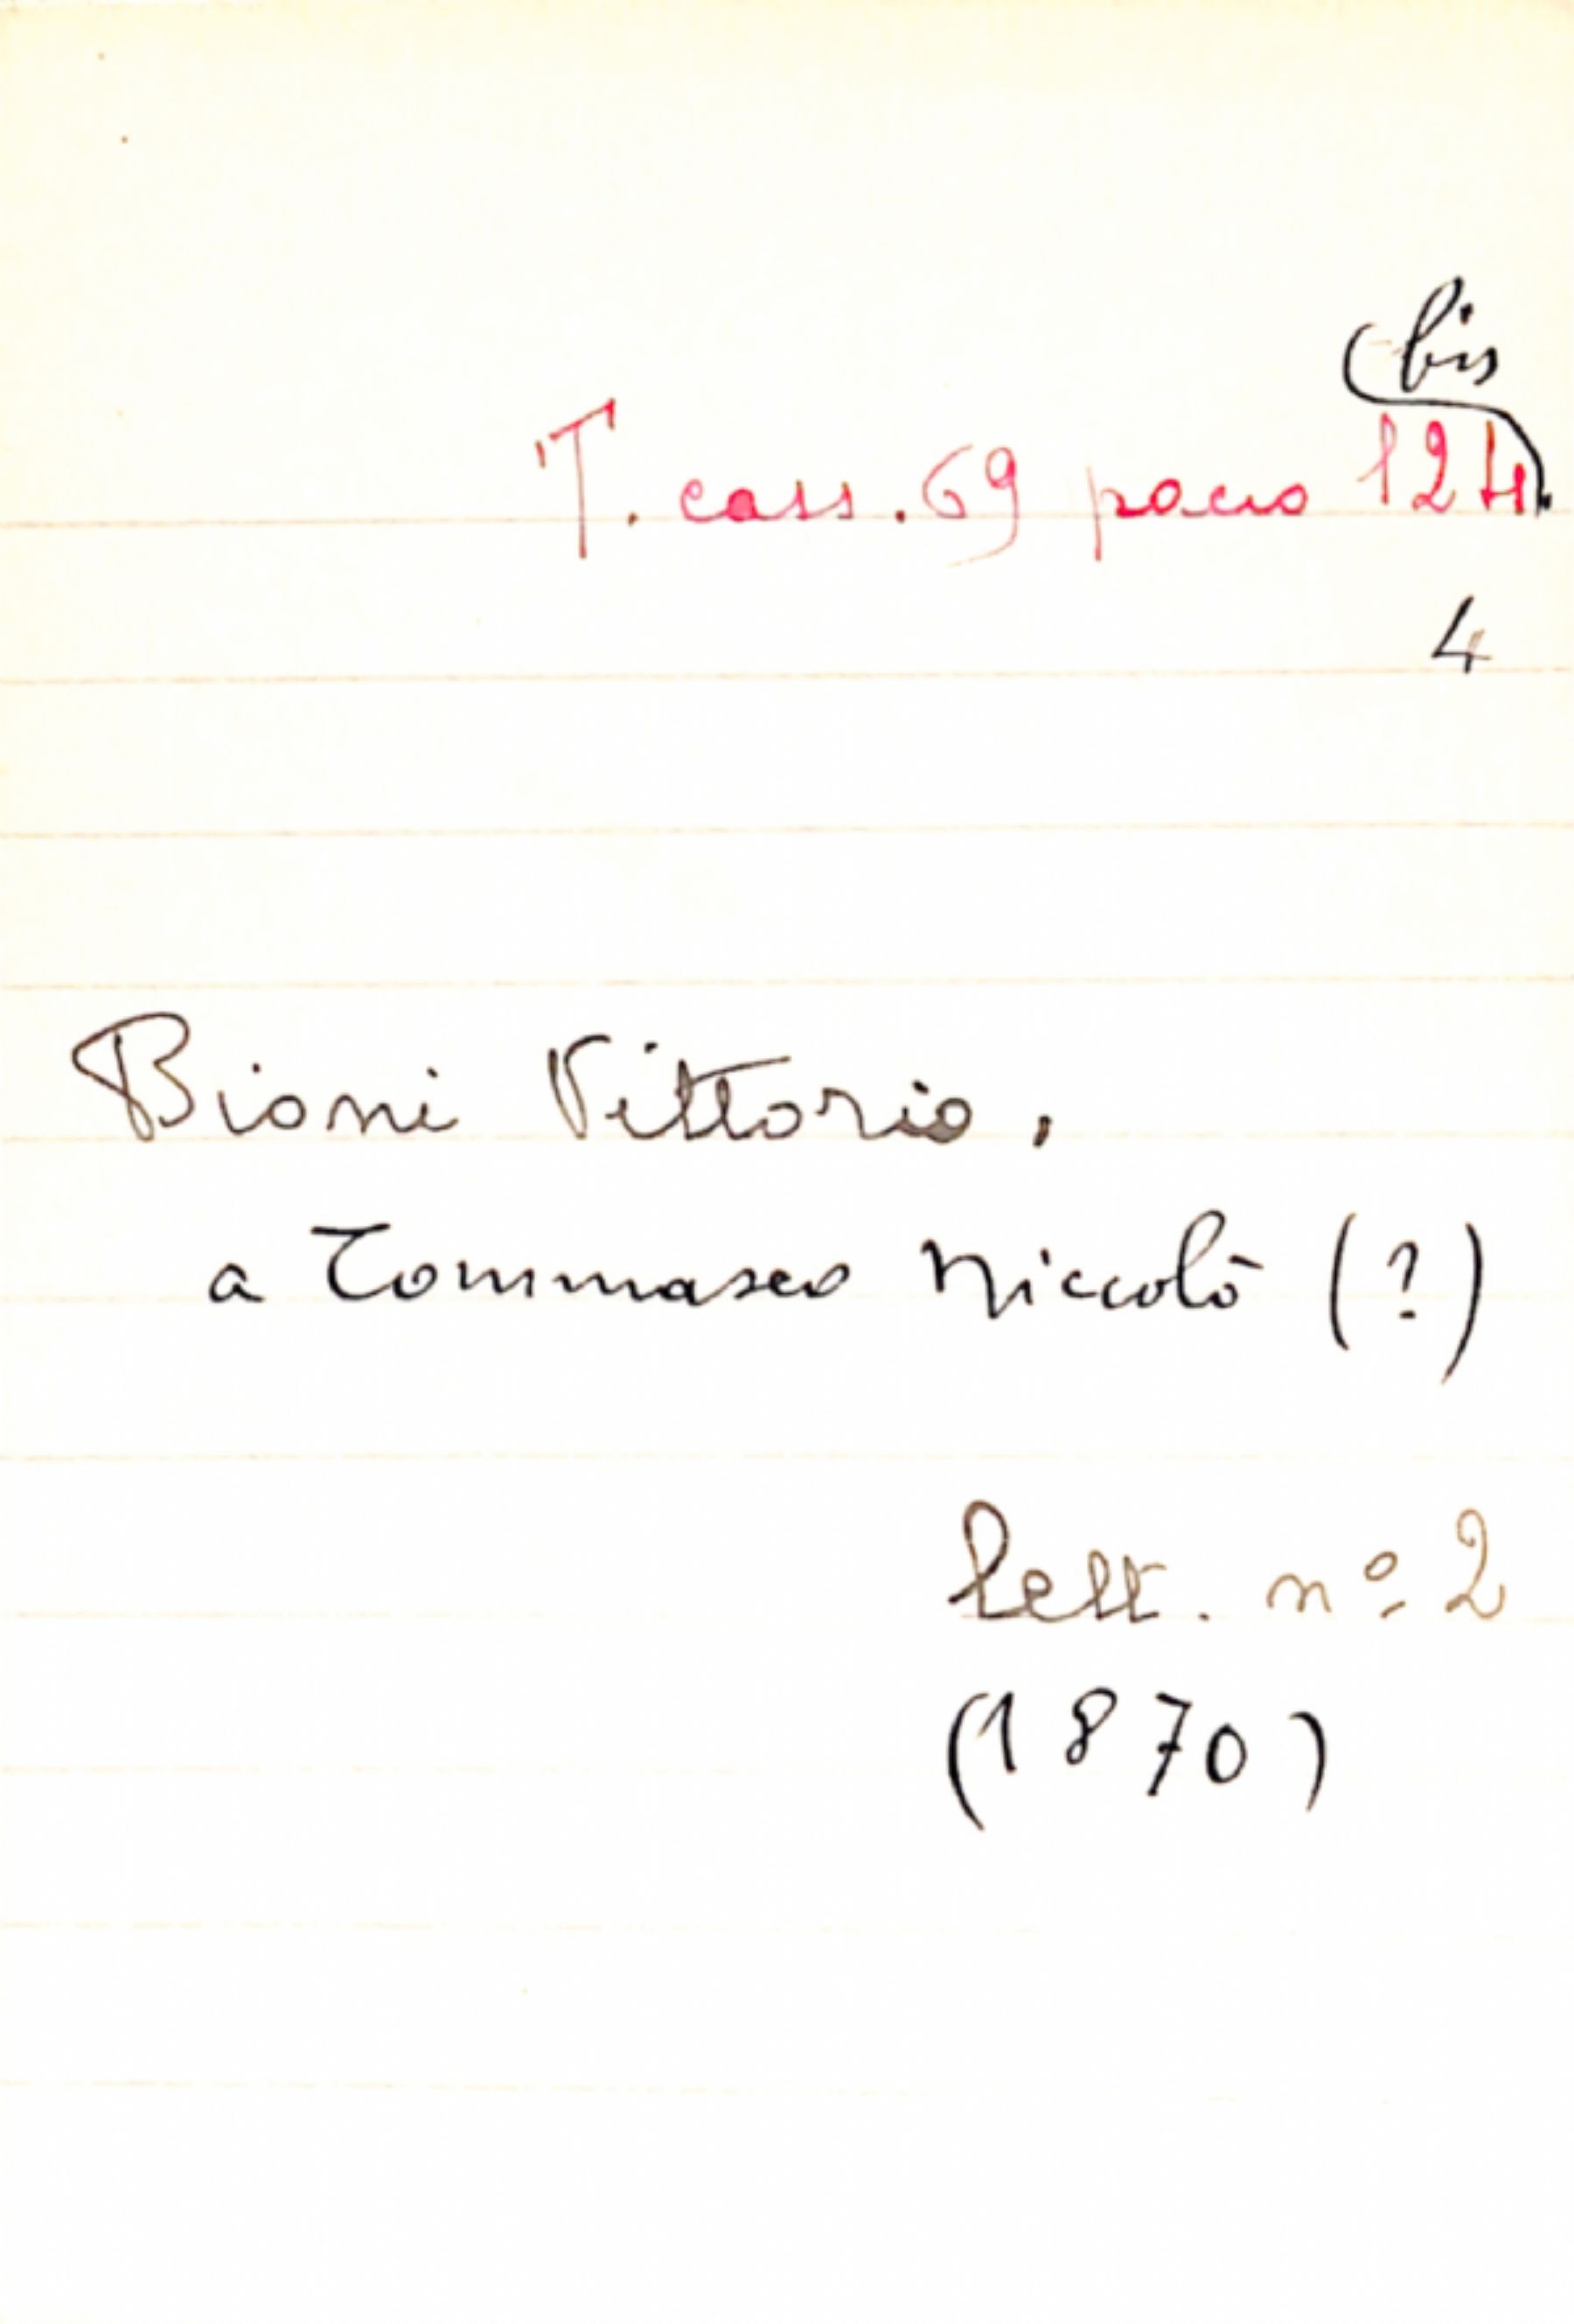 bis
T. cass. 69 pacco 124.
4
Bioni Vittorio,
a Tommaseo Niccolò (?)
lett. nº 2
(1870)